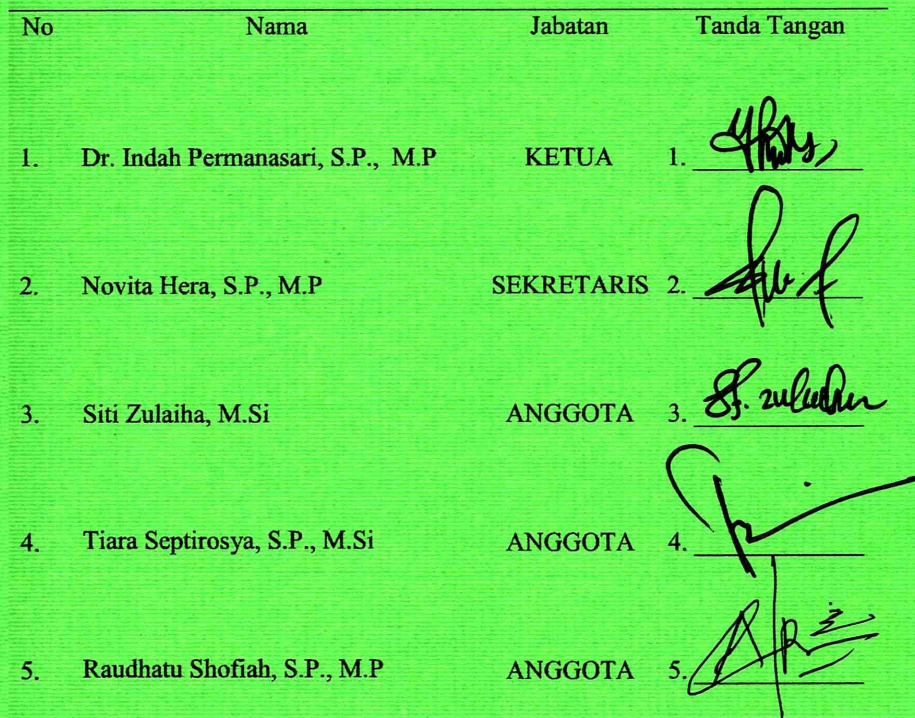 No Nama Jabatan Tanda Tangan
1. Dr. Indah Permanasari, S.P., M.P KETUA 1.
2. Novita Hera, S.P., M.P SEKRETARIS 2.
3. Siti Zulaiha, M.Si ANGGOTA 3.
4. Tiara Septirosya, S.P., M.Si ANGGOTA 4.
5. Raudhatu Shofiah, S.P., M.P ANGGOTA 5.